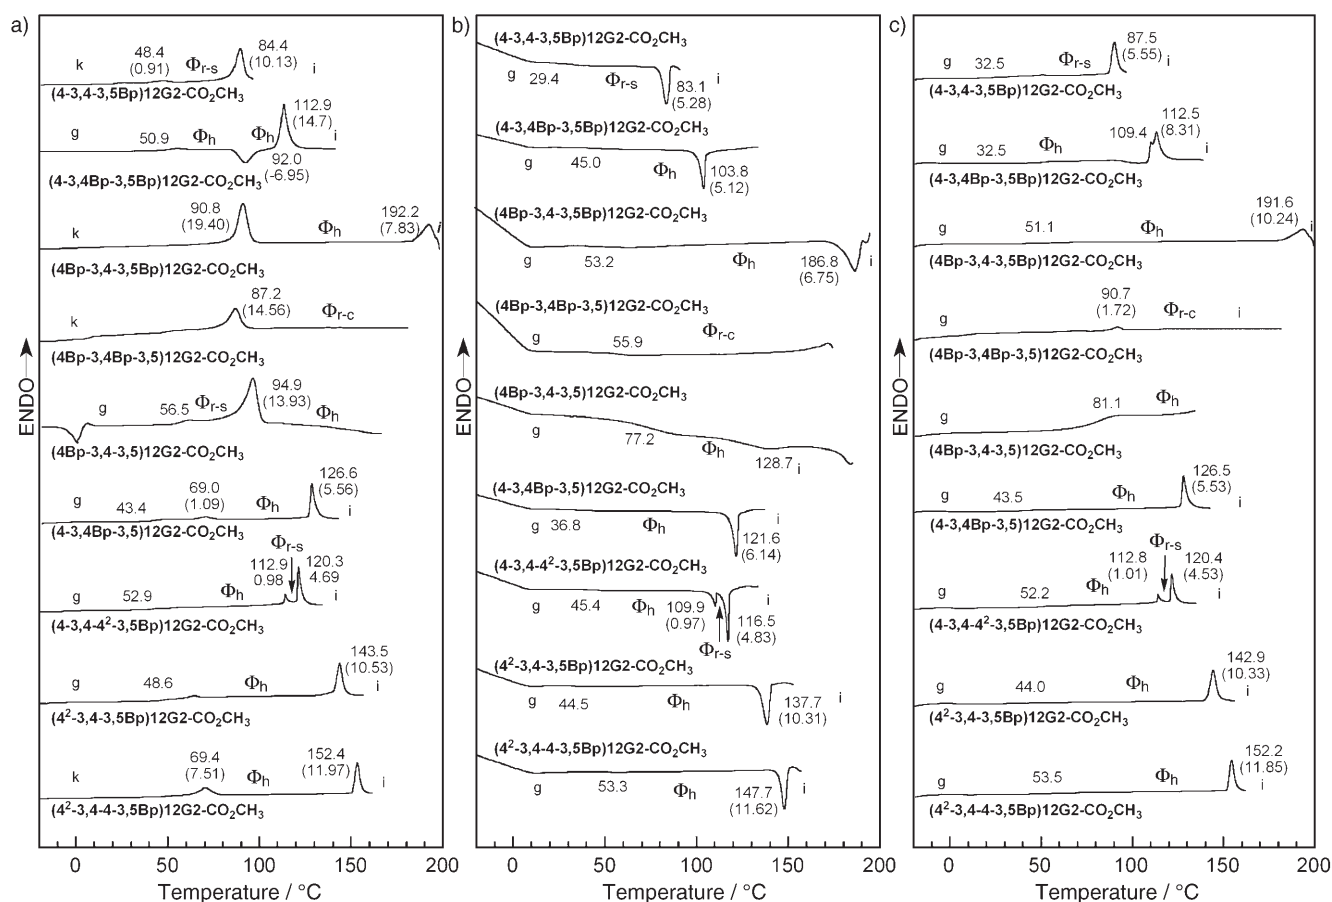 a)
48.4
(0.91)
Φr-s
84.4
(10.13)
k
i
(4-3,4-3,5Bp)12G2-CO2CH3
112.9
(14.7)
g
50.9
Φh
Φh
i
92.0
(-6.95)
(4-3,4Bp-3,5Bp)12G2-CO2CH3
90.8
(19.40)
192.2
(7.83)
k
Φh
i
(4Bp-3,4-3,5Bp)12G2-CO2CH3
87.2
(14.56)
k
Φr-c
(4Bp-3,4Bp-3,5)12G2-CO2CH3
94.9
(13.93)
g
56.5
Φr-s
Φh
(4Bp-3,4-3,5)12G2-CO2CH3
126.6
(5.56)
69.0
(1.09)
g
43.4
Φh
i
(4-3,4Bp-3,5)12G2-CO2CH3
Φr-s
112.9
0.98
120.3
4.69
g
52.9
Φh
i
(4-3,4-4²-3,5Bp)12G2-CO2CH3
143.5
(10.53)
g
48.6
Φh
i
(4²-3,4-3,5Bp)12G2-CO2CH3
69.4
(7.51)
152.4
(11.97)
k
Φh
i
(4²-3,4-4-3,5Bp)12G2-CO2CH3
ENDO
0 50 100 150 200
Temperature / °C
b)
(4-3,4-3,5Bp)12G2-CO2CH3
g 29.4
Φr-s
83.1
(5.28)
i
(4-3,4Bp-3,5Bp)12G2-CO2CH3
g
45.0
Φh
103.8
(5.12)
(4Bp-3,4-3,5Bp)12G2-CO2CH3
g
53.2
Φh
186.8
(6.75)
i
(4Bp-3,4Bp-3,5)12G2-CO2CH3
g
55.9
Φr-c
(4Bp-3,4-3,5)12G2-CO2CH3
g
77.2
Φh
128.7
i
(4-3,4Bp-3,5)12G2-CO2CH3
g 36.8
Φh
i
121.6
(6.14)
(4-3,4-4²-3,5Bp)12G2-CO2CH3
g
45.4
Φh
109.9
(0.97)
i
116.5
(4.83)
Φr-s
(4²-3,4-3,5Bp)12G2-CO2CH3
g
44.5
Φh
137.7
(10.31)
i
(4²-3,4-4-3,5Bp)12G2-CO2CH3
g
53.3
Φh
147.7
(11.62)
i
ENDO
0 50 100 150 200
Temperature / °C
c)
87.5
(5.55)
g
32.5
Φr-s
i
(4-3,4-3,5Bp)12G2-CO2CH3
112.5
(8.31)
109.4
g
32.5
Φh
i
(4-3,4Bp-3,5Bp)12G2-CO2CH3
191.6
(10.24)
g
51.1
Φh
i
(4Bp-3,4-3,5Bp)12G2-CO2CH3
90.7
(1.72)
g
Φr-c
i
(4Bp-3,4Bp-3,5)12G2-CO2CH3
81.1
g
Φh
(4Bp-3,4-3,5)12G2-CO2CH3
126.5
(5.53)
g
43.5
Φh
i
(4-3,4Bp-3,5)12G2-CO2CH3
Φr-s
112.8
(1.01)
120.4
(4.53)
g
52.2
Φh
i
(4-3,4-4²-3,5Bp)12G2-CO2CH3
142.9
(10.33)
g
44.0
Φh
i
(4²-3,4-3,5Bp)12G2-CO2CH3
152.2
(11.85)
g
53.5
Φh
i
(4²-3,4-4-3,5Bp)12G2-CO2CH3
ENDO
0 50 100 150 200
Temperature / °C